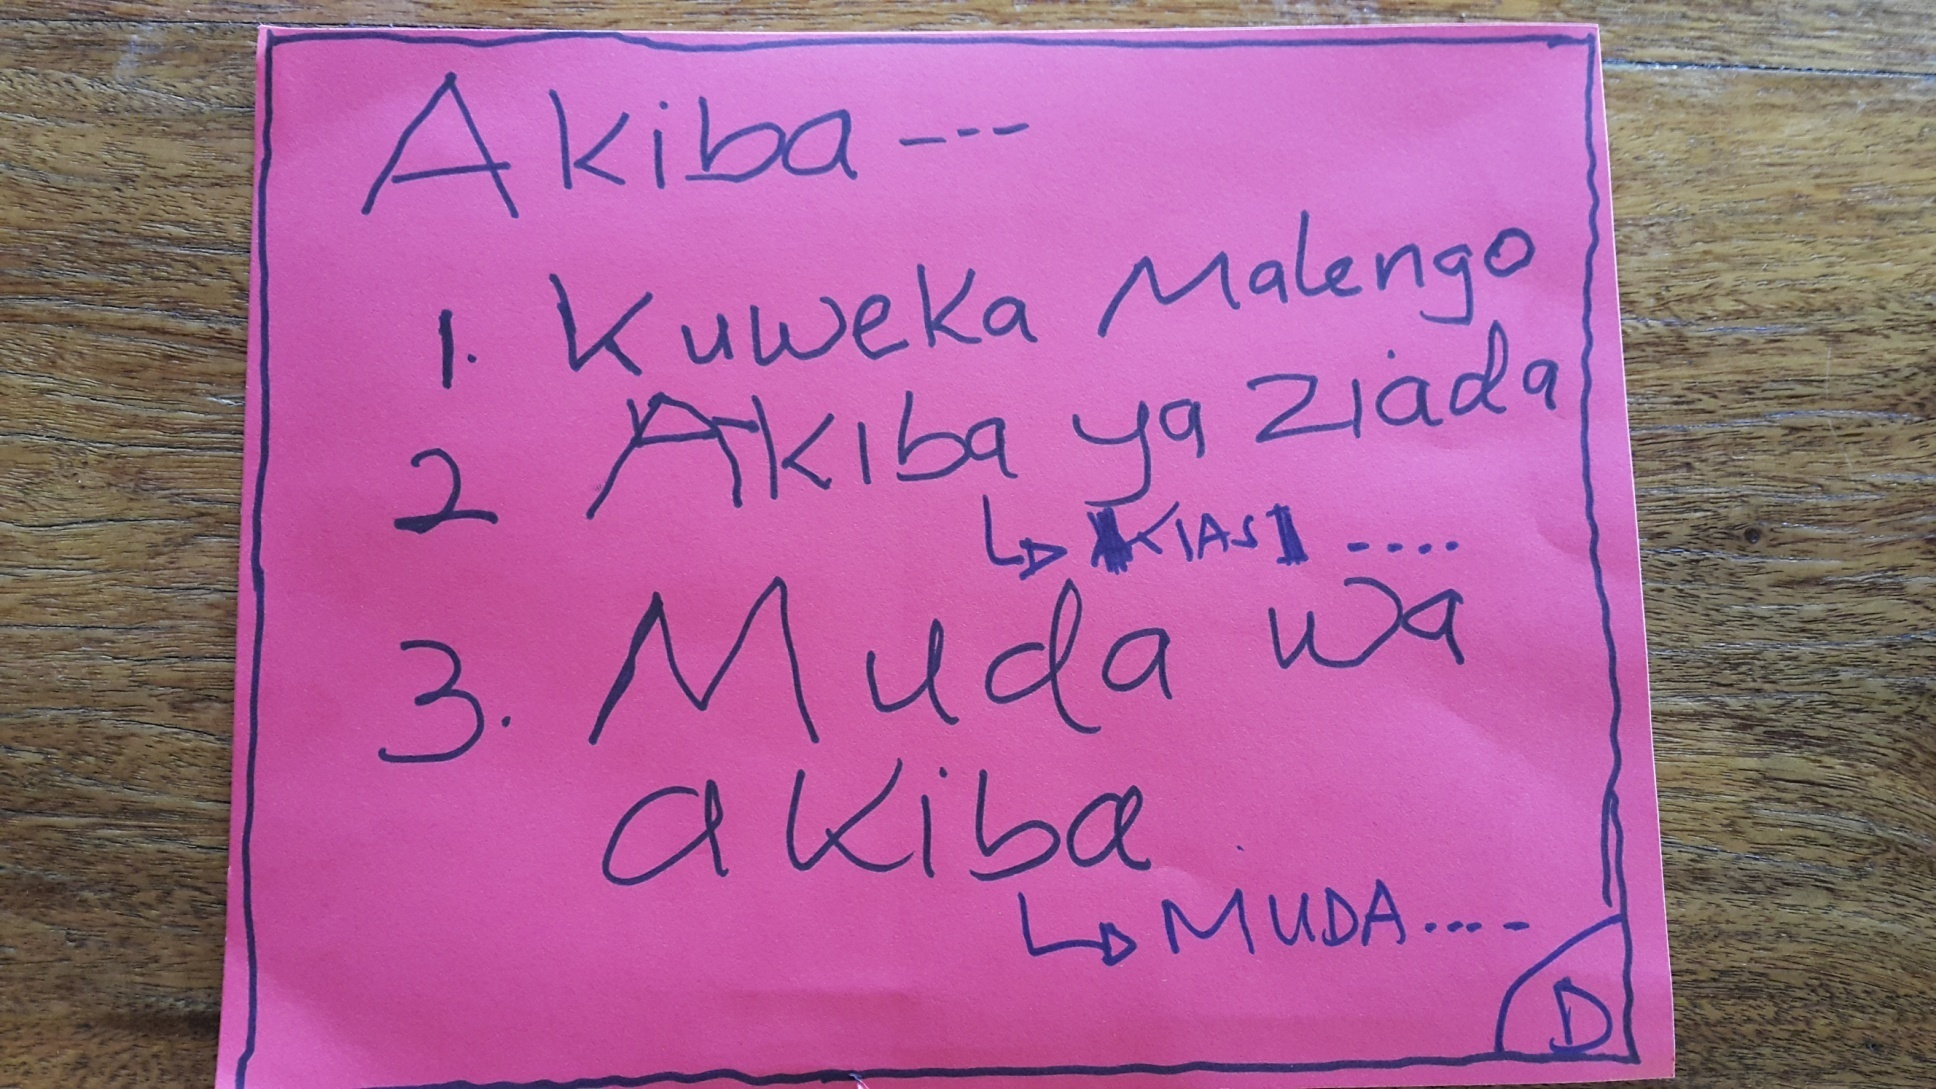 Akiba ---
1. Kuweka Malengo
2 Akiba ya ziada
KIASI ....
3. Muda wa
akiba
MUDA....-
D